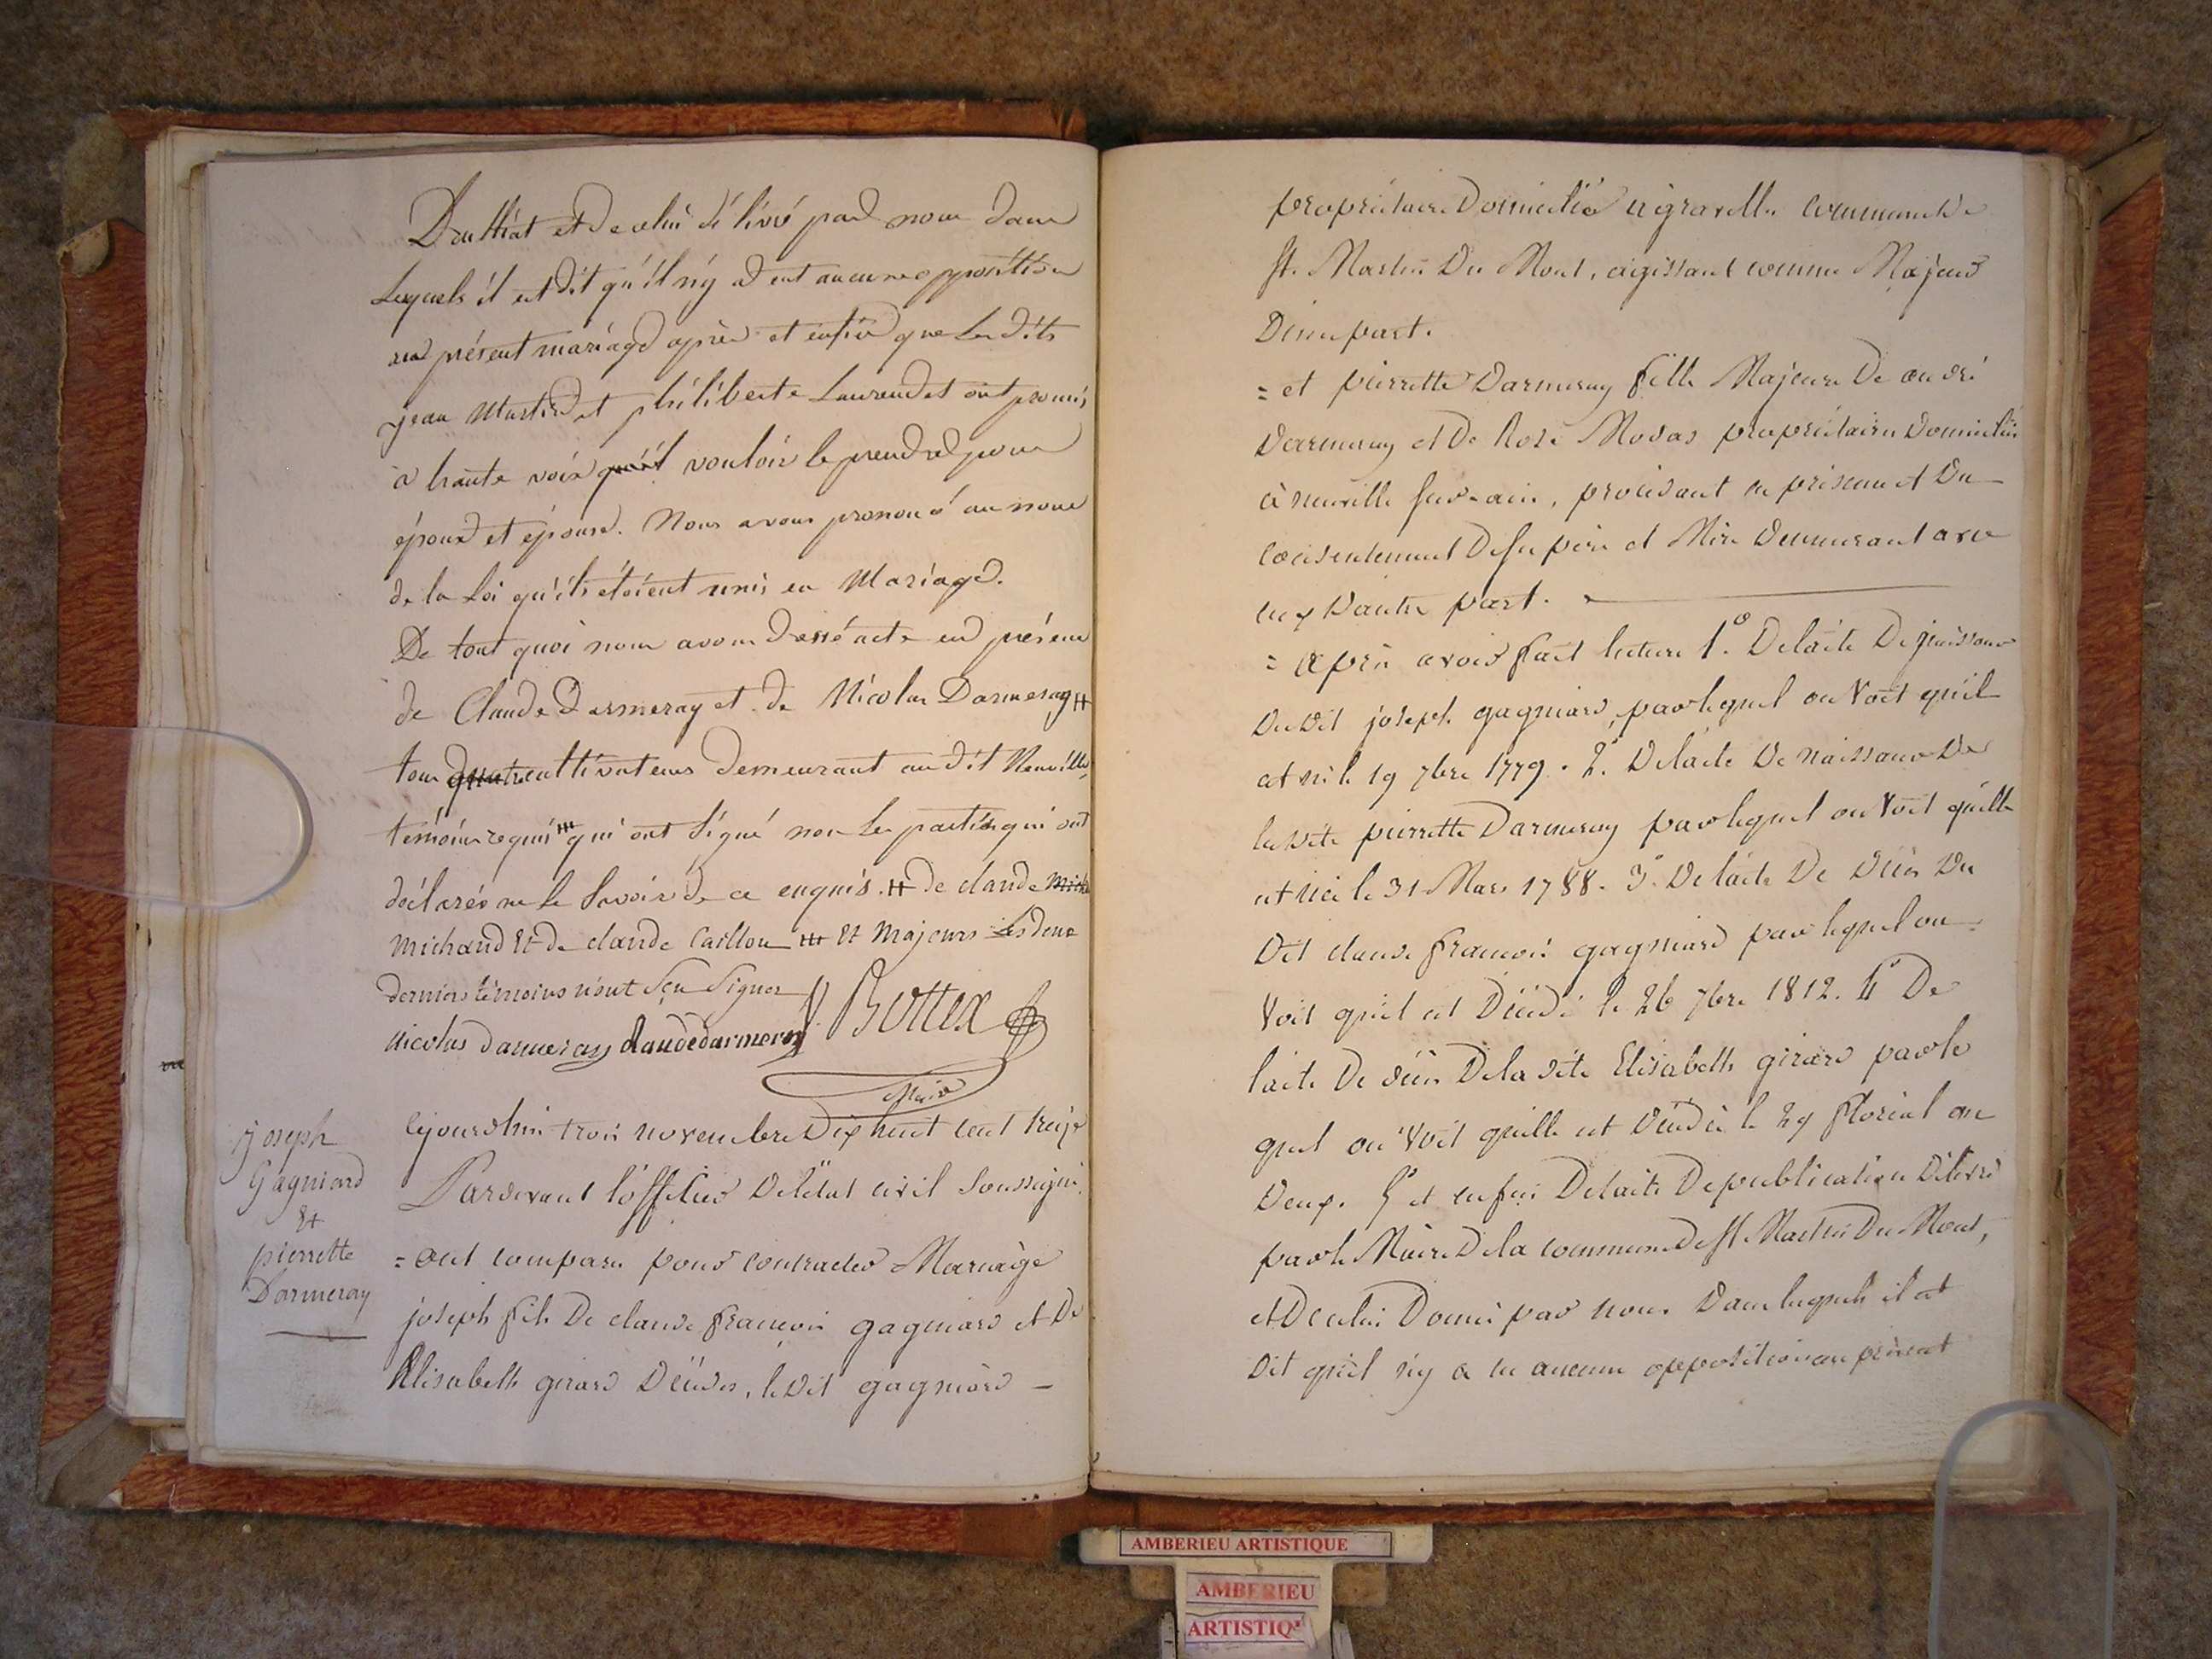 Druillat et de celui délivré par nous dans
lesquels il est dit qu'il n'y a eut aucune opposition
au présent mariage après et enfin que les dits
jean Martin et philiberte Laurendet ont promis
à haute voix qu'il vouloir le prendre pour
époux et épouse. Nous avons prononcé au nom
de la Loi qu'ils étoient unis en Mariage.
De tout quoi nous avons dressé acte en présence
de Claude Darmeray et de Nicolas Darmeray #
tous quatre cultivateurs demeurant au dit Neuville,
témoins requis ## qui ont signé non les parties qui ont
déclarés ne le savoir de ce enquis. # de claude mich
michaud Et de claude Caillou ## Et Majeurs Les deux
derniers témoins n'ont sçu signer
nicolas darmeray claudedarmeray Bottex
Maire
joseph
Gagniard
Et
pierrette
Darmeray
Cejourdhui trois novembre Dix huit cent treize
Pardevant l'officier De l'état civil soussigné
= ont comparu pour contracter Mariage
joseph fils De claude françois gagniard et De
Elisabeth girard Décédés, le dit gagniard –
propriétaire Domicilié à gravelle commune De
St. Martin Du Mont, agissant comme Majeur
D'une part.
= et pierrette Darmeray fille Majeure De andré
Darmeray et De Rose Modas propriétaires Domiciliés
à neuville sur-ain, procédant en présence et Du
Consentement De ses père et Mère Demeurant avec
eux D'autre part.
= après avoir fait lecture 1°. De l'acte De naissance
Du Dit joseph gagniard, par lequel on Voit qu'il
est né le 19 7bre 1779. 2°. De l'acte De naissance De
la Dite pierrette Darmeray par lequel on Voit qu'elle
est née le 31 Mars 1788. 3°. De l'acte De Décès Du
Dit claude françois gagniard par lequel on
Voit qu'il est Décédé le 26 7bre 1812. 4° De
l'acte De Décès De la Dite Elisabeth girard par le
quel on Voit qu'elle est Décédée le 29 floréal an
Deux. 5° et enfin De l'acte De publication Délivré
par le Maire De la commune De St Martin Du Mont,
et De celui Donné par nous Dans lesquels il est
Dit qu'il n'y a eu aucune opposition au présent
AMBERIEU ARTISTIQUE
AMBERIEU
ARTISTIQU